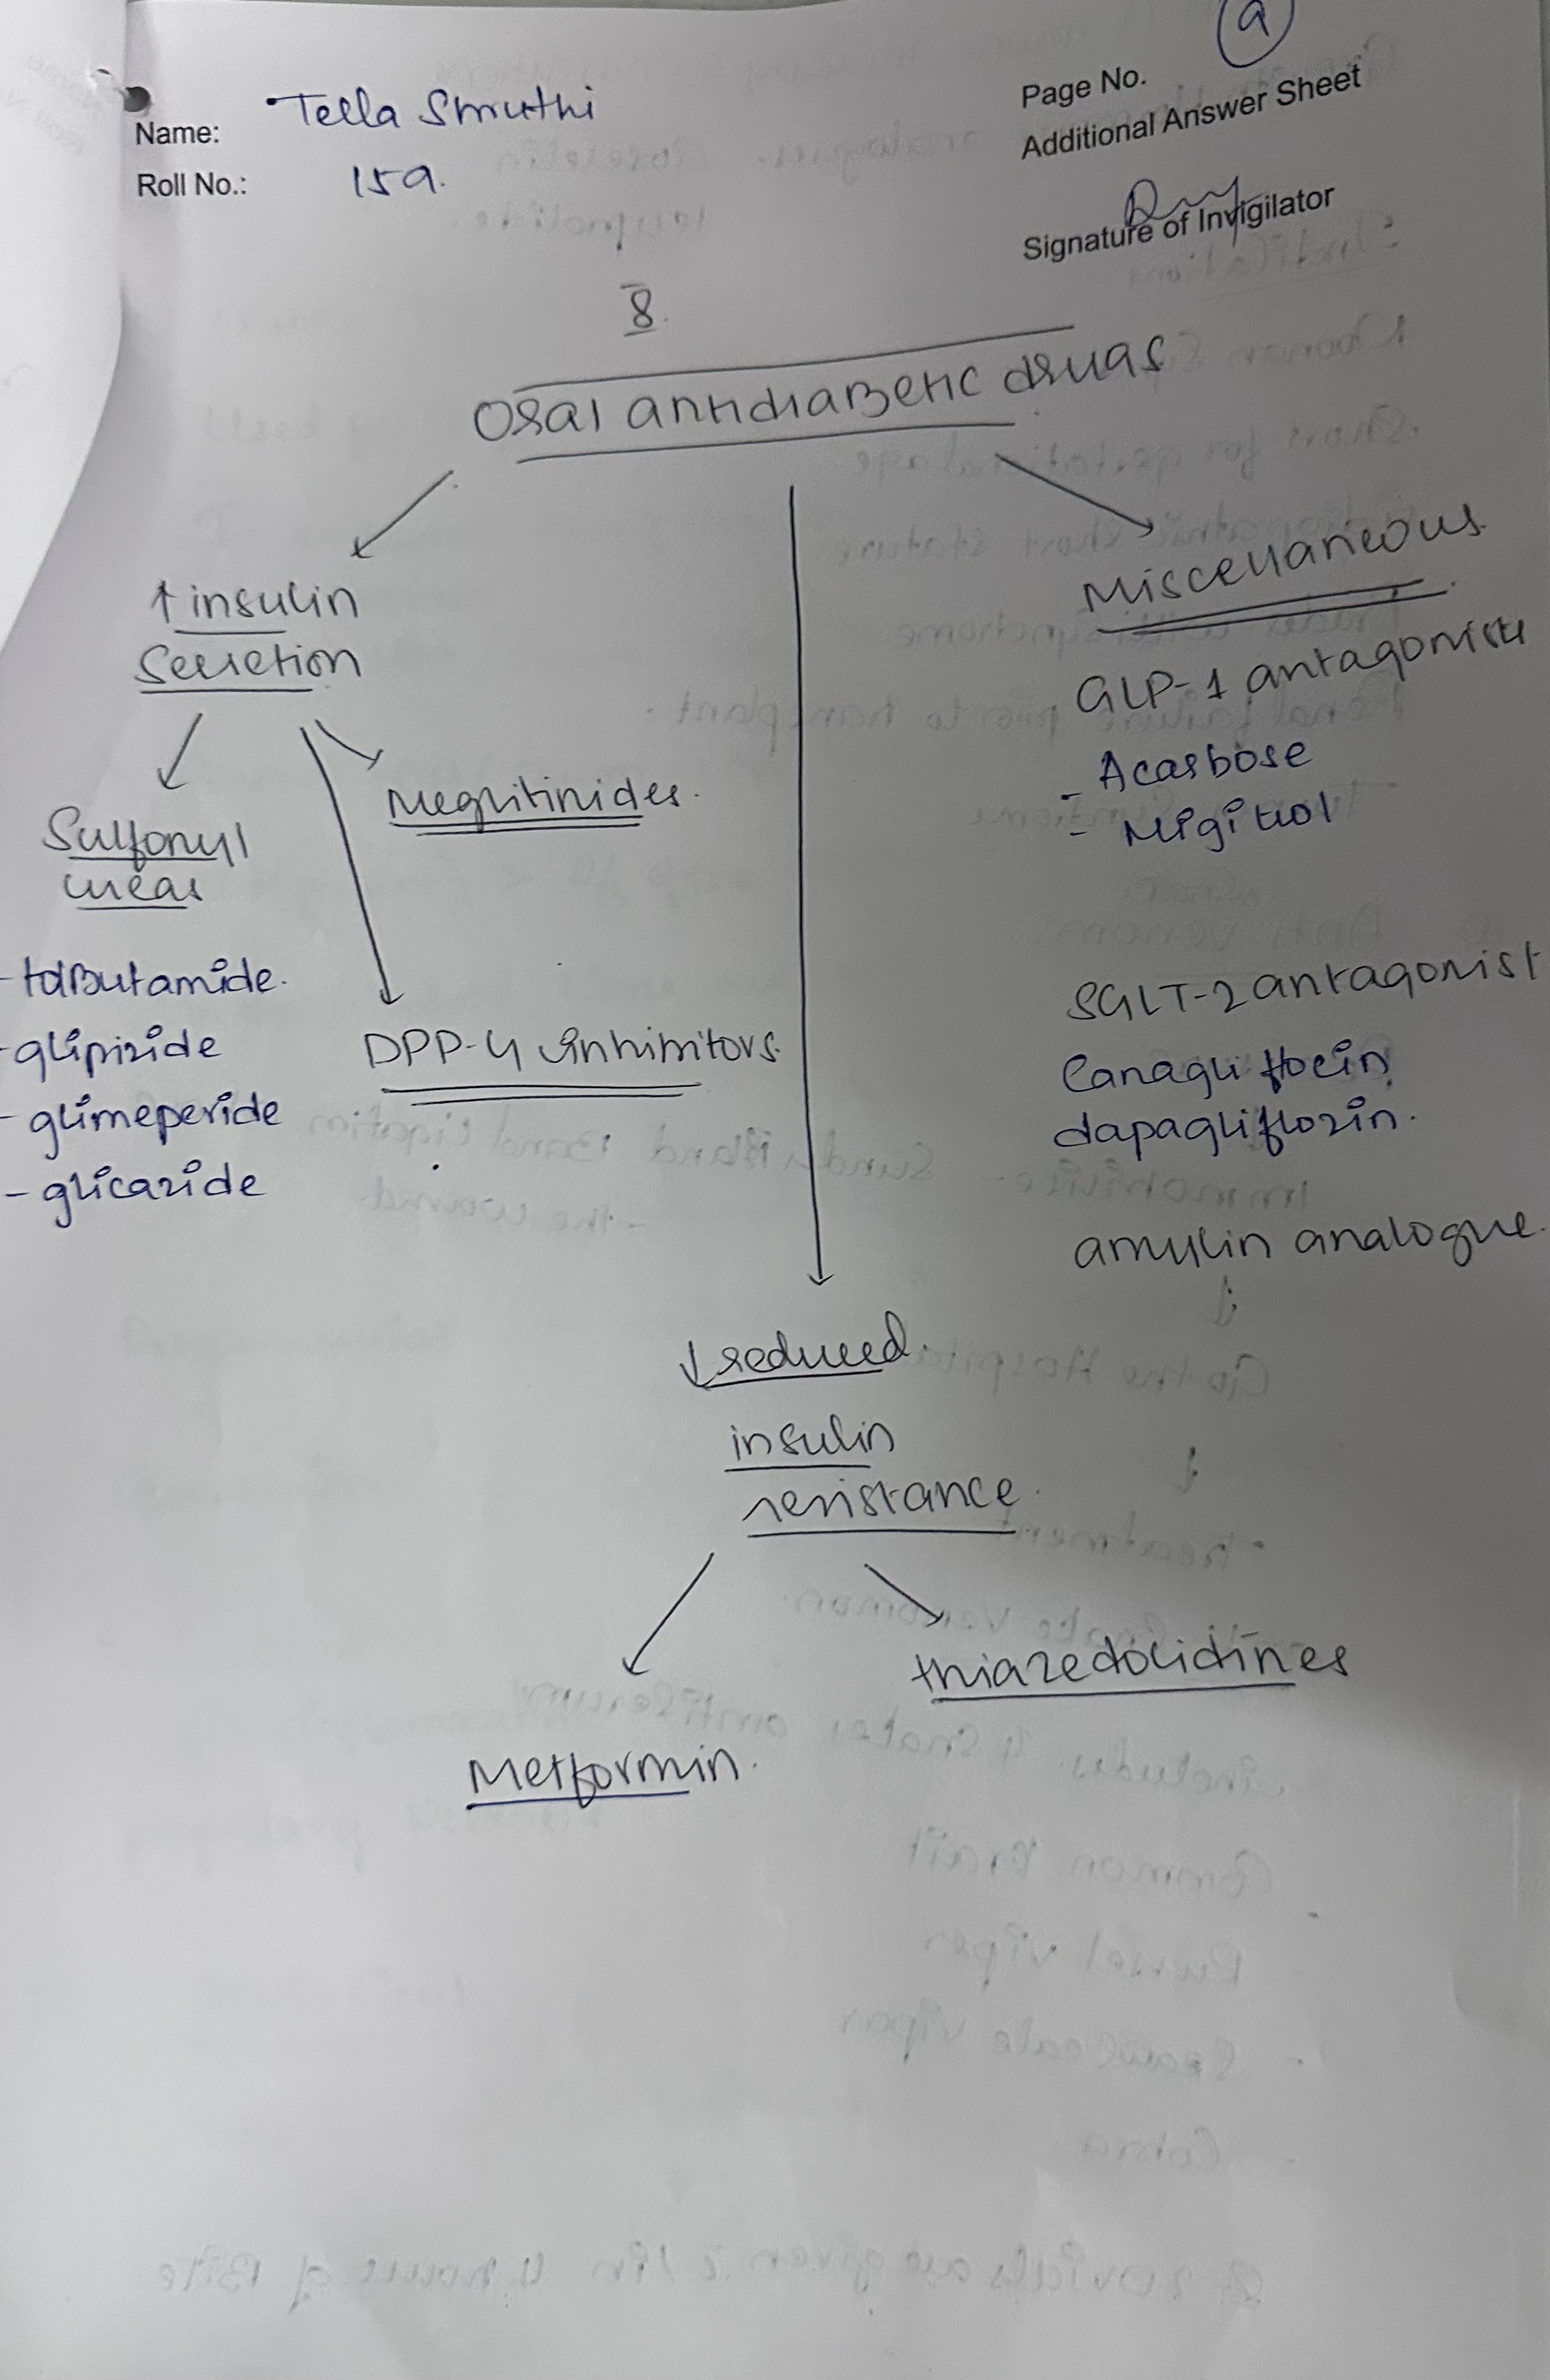 9
Page No.
Additional Answer Sheet
Name: Tella Shruthi
Roll No.: 159.
Signature of Invigilator
8.
Oral antidiabetic drugs
↑ insulin
secretion
Sulfonyl
ureas
- tolbutamide.
- glipizide
- glimeperide
- glicazide
Meglitinides.
DPP-4 inhibitors.
↓ reduced.
insulin
resistance.
Metformin.
thiazedolidines
Miscellaneous.
GLP-1 antagonists
- Acarbose
- Migitol
SGLT-2 antagonist
Canagliflozin
dapagliflozin.
amylin analogue.